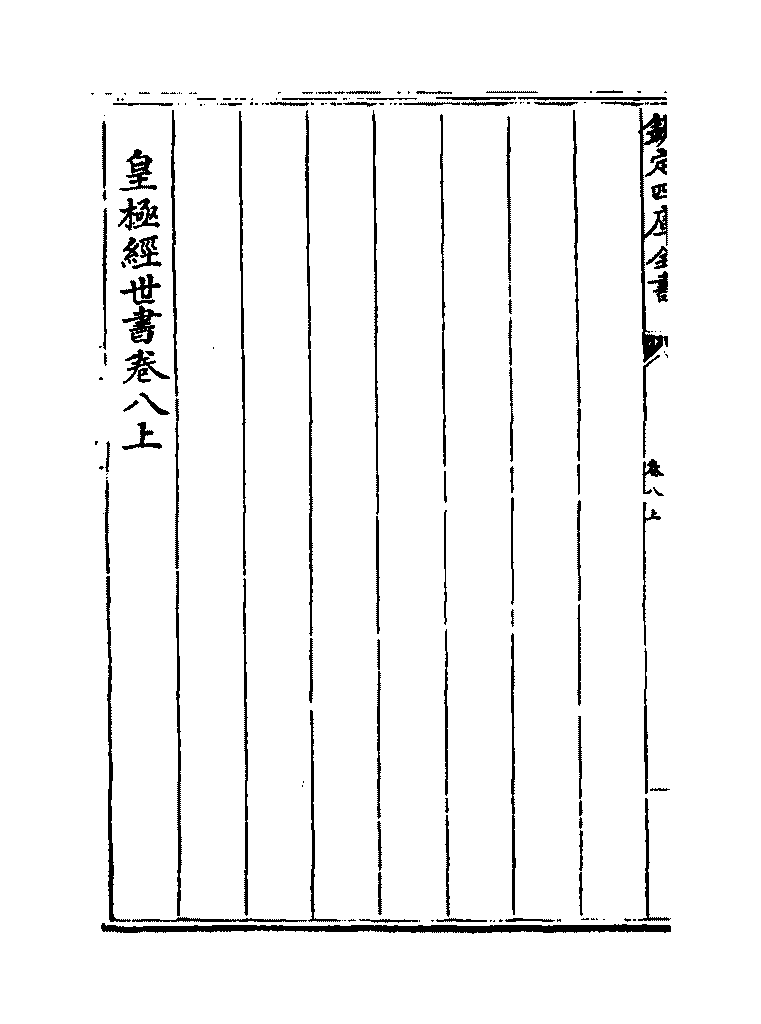 欽定四庫全書
卷八上
皇極經世書卷八上